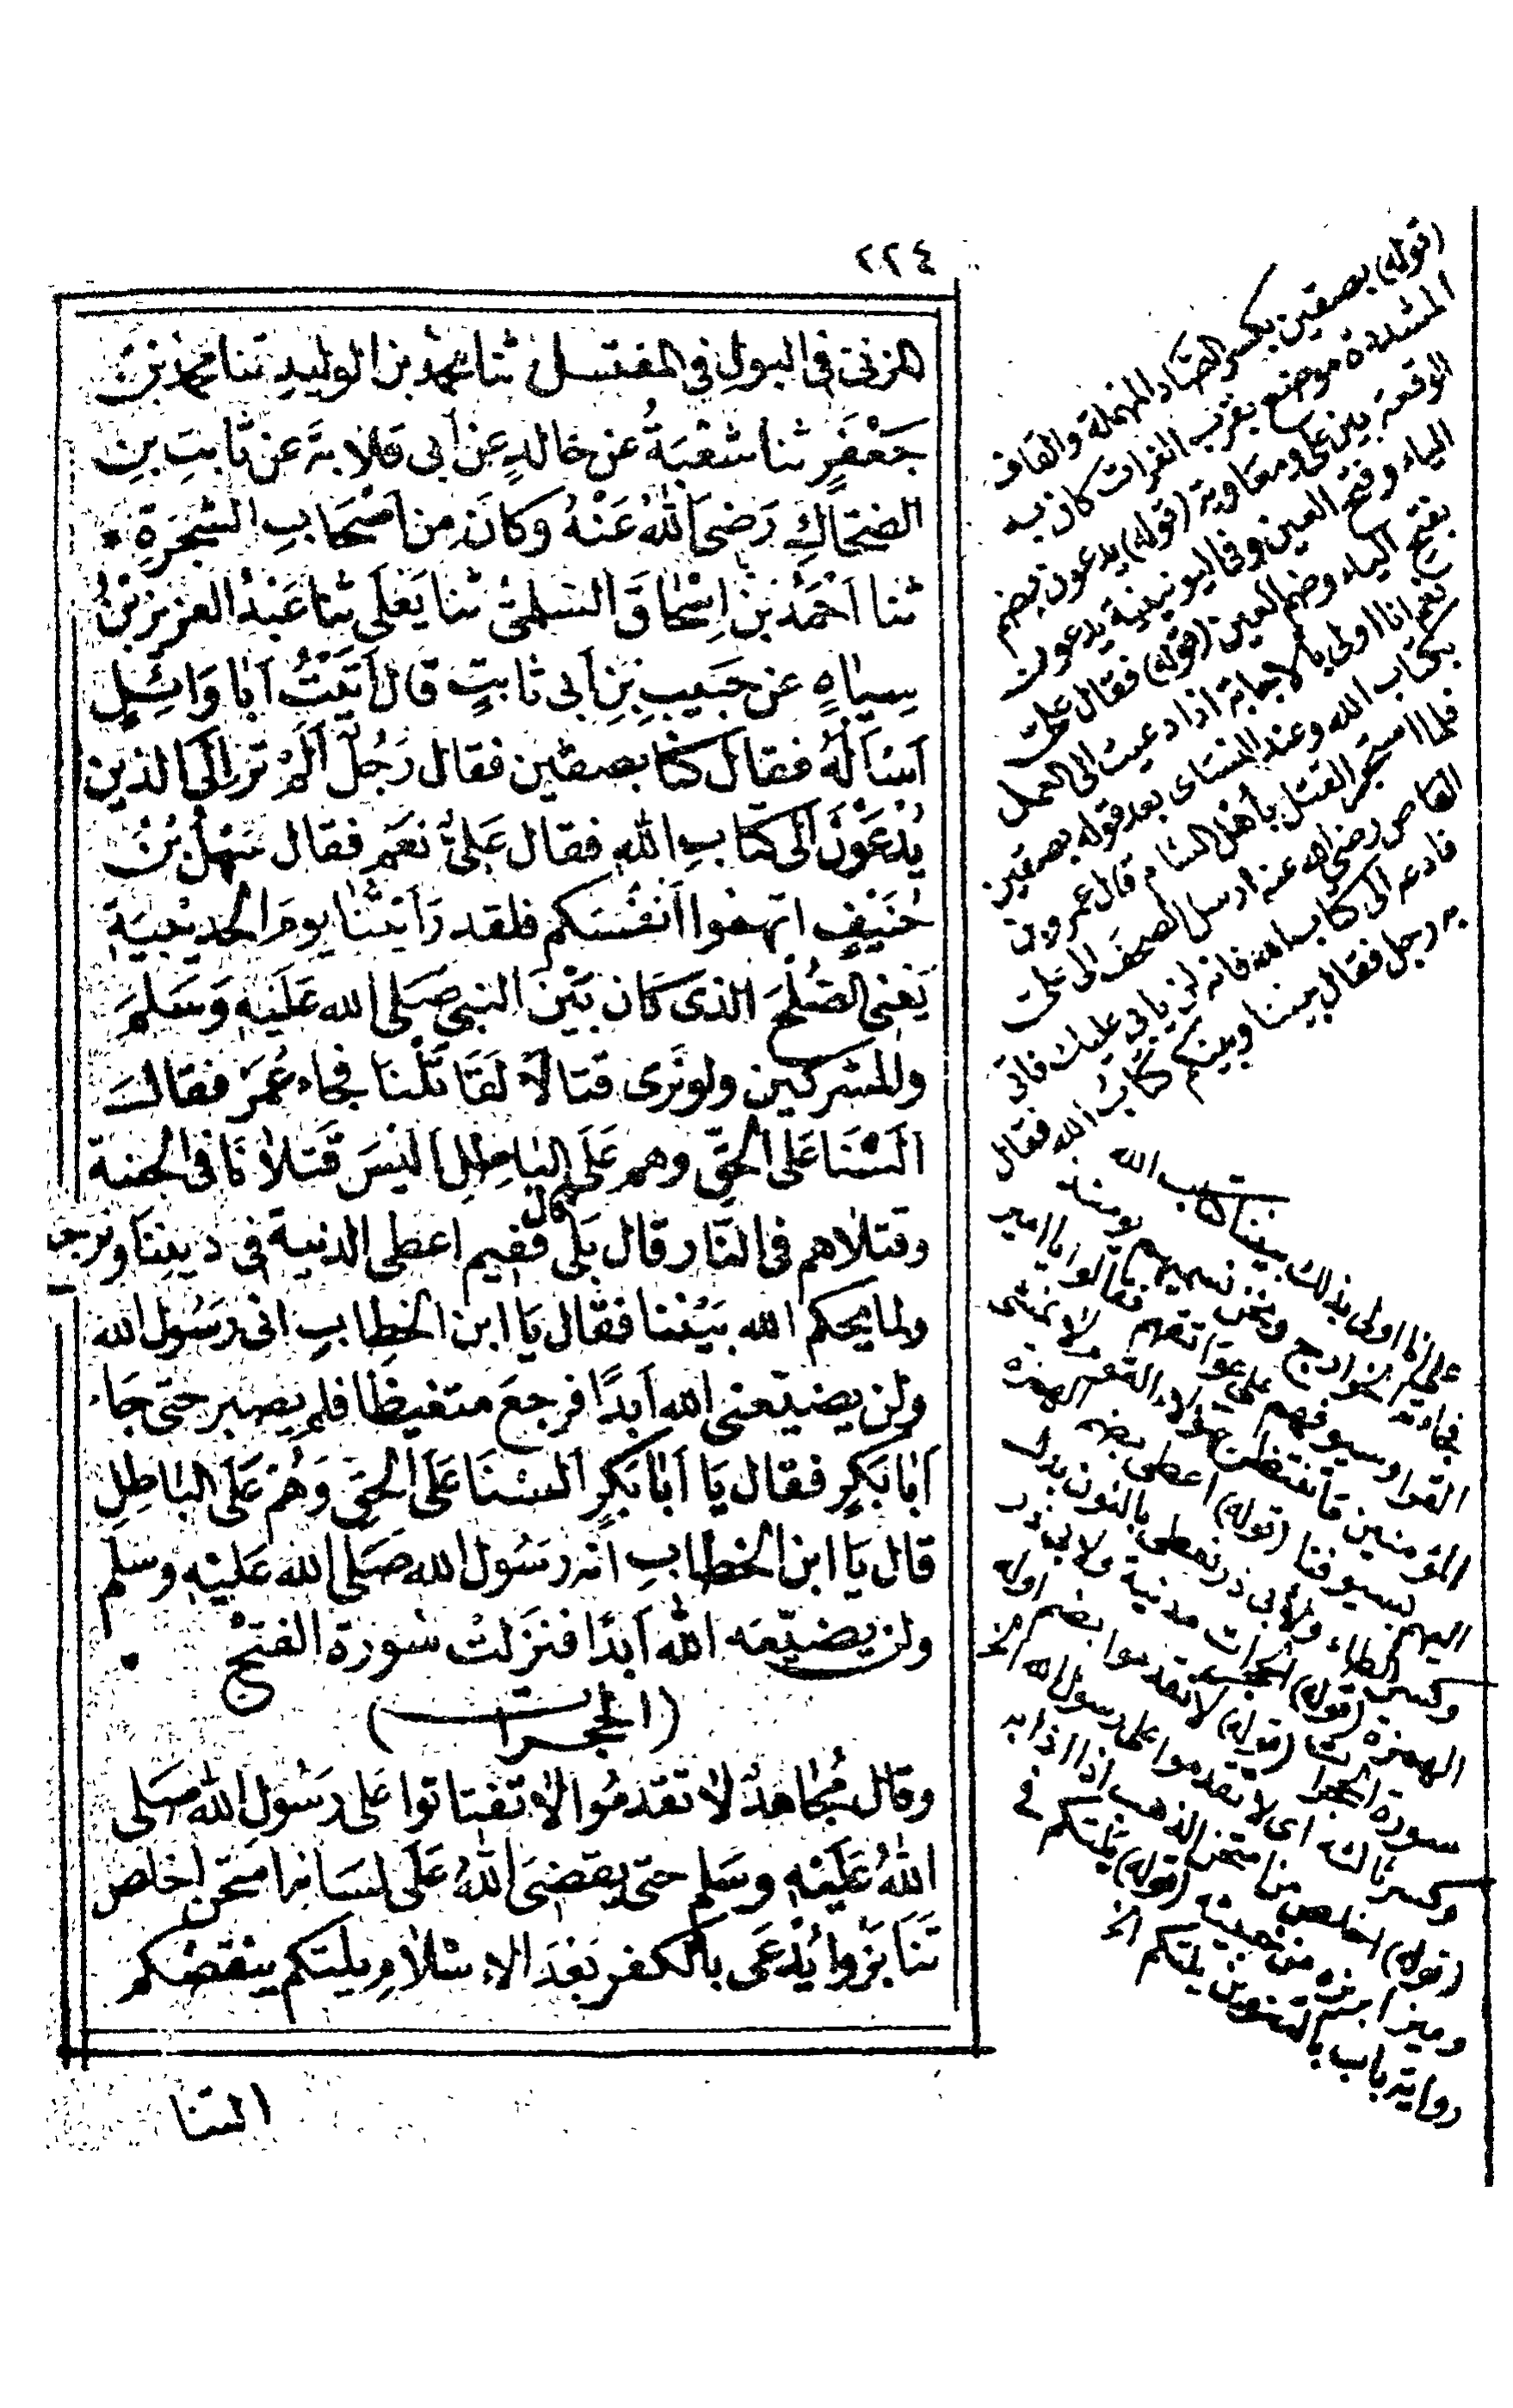 ٢٢٤
المزنى فى البول فى المغتسل ثنا محمد بن الوليد ثنا محمد بن
جَعْفَرٍ ثنا شعْبَةُ عن خالدٍ عن أبى قلابةَ عن ثابتِ بنِ
الضحّاكِ رَضىَ اللهُ عَنْهُ وكانَ من اَصْحَابِ الشجَرَةِ *
ثنا اَحْمَدُ بنُ اِسْحَاقَ السّلمىُّ ثنا يَعْلَى ثنا عَبْدُ العزيزِ بنُ
سِيَاهٍ عن حَبَيبِ بنِ اَبى ثابتٍ قال اَتَيْتُ اَبَا وَائِلٍ
اَسْاَلُهُ فقال كنّا بصفين فقال رَجُلٌ اَلَمْ تر الَى الذين
يُدْعَوْنَ الَى كتابِ اللهِ فقال عَلىٌّ نعَم فقال سَهْلُ بْنُ
حُنَيْفٍ اتهموا اَنفُسَكم فلقد رَاَيتُنا يومَ الحديْبيَةِ
يَعْنى الصُلْحَ الذى كان بَيْنَ النبى صَلى الله عَلَيْهِ وَسَلمَ
والمشركين ولو نَرى قتالاً لَقَاتَلْنا فجاء عُمَرُ فقالَ
اَلَسْنَا عَلى الحَقِّ وهم عَلَى البَاطِلِ اَليْسَ قَتلاَنَا فى الجنة
وقتلاهم فى النّار قال بَلَى قال ففيم اعطى الدنية فى دينِنَا ونرجع
ولما يحكم الله بَيْننا فقال يَا ابن الخطابِ انى رَسُول الله
ولن يضيّعنى الله اَبَدًا فرجعَ متغيظا فلم يصبر حتّى جَاء
اَبَا بَكرٍ فقال يَا اَبَا بَكرٍ اَلسْنَا عَلَى الحَقِّ وَهُمْ عَلَى البَاطِلِ
قال يَا ابن الخطابِ انه رَسُول الله صَلى الله عَليْهِ وسلم
ولن يضيّعه الله اَبَدًا فنَزَلتْ سُورة الفتحْ *
(الحجرات)
وقال مُجَاهدٌ لا تقدمُوا لا تفتاتوا على رَسُولِ الله صَلى
اللهُ عَلَيْهِ وسَلم حتى يقضىَ اللهُ عَلَى لسَانه امتحن اخلص
تَنَابَزُوا يُدْعَى بالكفر بَعْدَ الاِسْلاَمِ يلتكم ينقصْكم
التنا
(قوله) بصفين بكسر الصّاد المهملة والفاء
المشددة موضع بقرب الفرات كان به
الوقعة بين على ومعاوية (قوله) يدعون بضم
الياء وفتح العين وفى اليونينية يدعون
بفتح الياء وضم العين (قوله) فقال على
نعم انا اولى بالاجابة اذا دعيت الى العمل
بكتاب الله وعند النساى بعد قوله بصفين
فلما استحر القتل بأهل الشام قال عمرو بن
العاص رضى الله عنه ارسل المصحف الى على
فادعه الى كتاب الله فانه لن يابى عليك فاتى
به رجل فقال بيننا وبينكم كتاب الله فقال
على انا اولى بذلك بيننا كتاب الله
فجاءته الخوارج ونحن نسميهم يومئذ
القرا وسيوفهم على عواتقهم فقالوا يا امير
المؤمنين ما ننتظر بهؤلاء القوم الا نمشى
اليهم بسيوفنا (قوله) اعطى بضم الهمزة
وكسر الطاء ولابى ذر نعطى بالنون بدل
الهمزة (قوله) الحجرات مدنية ولابى ذر
سورة الحجرات (قوله) لا تقدموا بضم اوله
وكسر ثالثه اى لا تقدموا على رسول الله الخ
(قوله) اخلص من امتحن الذهب اذا اذابه
وميز ابريزه من خبيثه (قوله) يلتكم فى
رواية باب بالتنوين يلتكم الخ